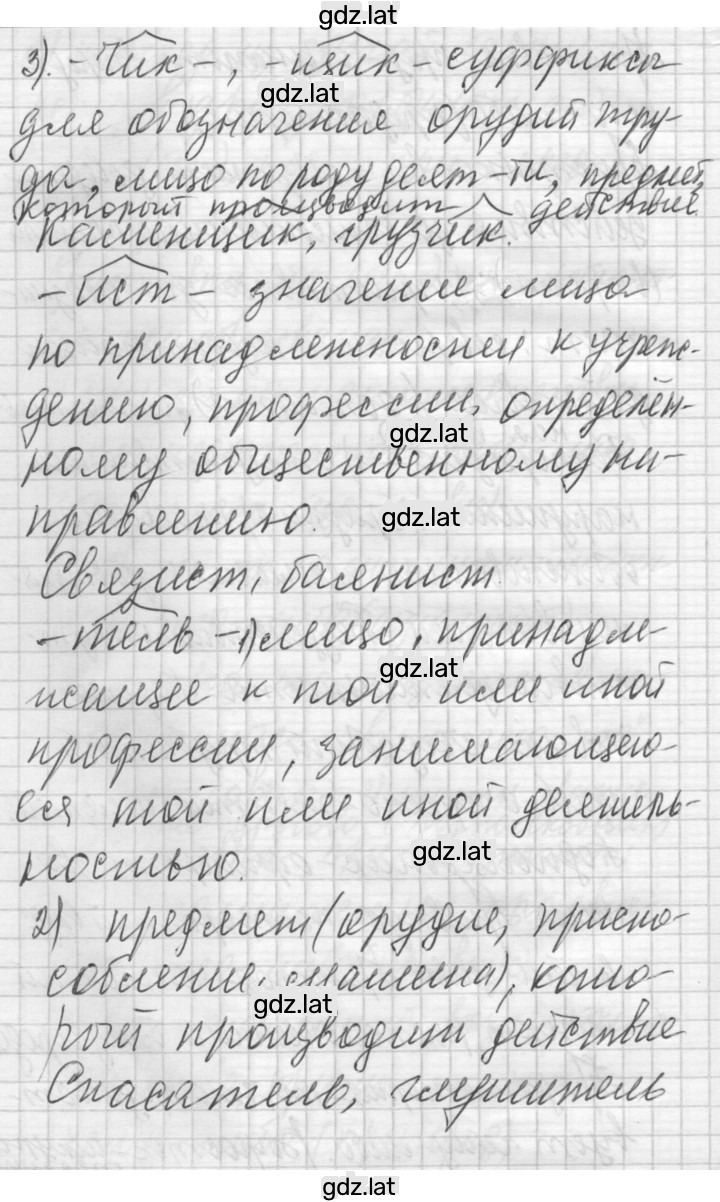 gdz.lat
3). -чик-, -щик- суффиксы
gdz.lat
для обозначения орудий тру-
да, лицо по роду деят-ти, предмет,
который производит действие.
Каменщик, грузчик.
-ист- значение лица
по принадлежности к учреж-
дению, профессии, определён-
gdz.lat
ному общественному на-
правлению.
gdz.lat
Связист, баянист.
-тель- 1) лицо, принадле-
gdz.lat
жащее к той или иной
профессии, занимающее-
ся той или иной деятель-
ностью.
gdz.lat
2) предмет (орудие, приспо-
собление, машина), кото-
gdz.lat
рый производит действие
Спасатель, глушитель
gdz.lat